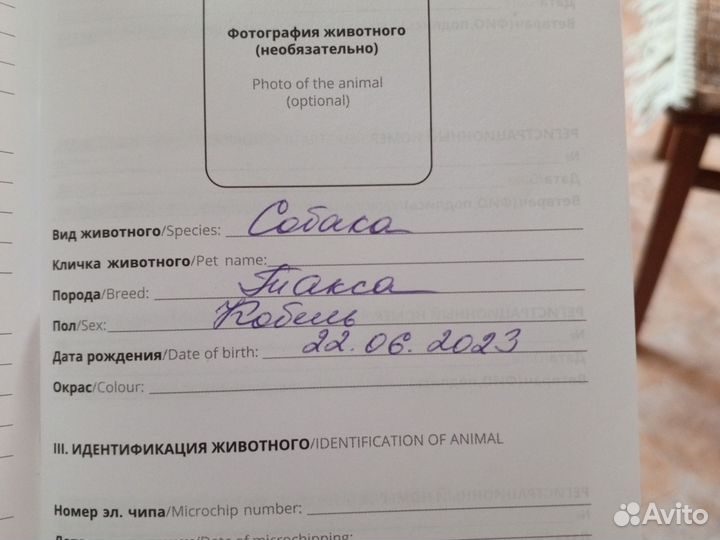 Фотография животного
(необязательно)
Photo of the animal
(optional)
Вид животного/Species: Собака
Кличка животного/Pet name:
Порода/Breed: Такса
Пол/Sex: Кобель
Дата рождения/Date of birth: 22.06.2023
Окрас/Colour:
III. ИДЕНТИФИКАЦИЯ ЖИВОТНОГО/IDENTIFICATION OF ANIMAL
Номер эл. чипа/Microchip number:
/Date of microchipping:
Avito